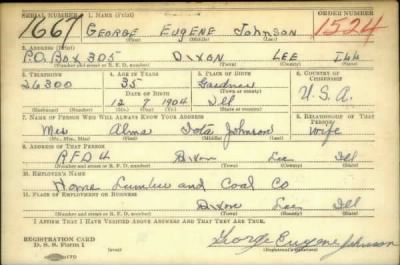 SERIAL NUMBER 1. NAME (Print) ORDER NUMBER
1661 GEORGE EUGENE JOHNSON 1524
(First) (Middle) (Last)
2. ADDRESS (Print)
P.O. BOX 305 DIXON LEE ILL
(Number and street or R. F. D. number) (Town) (County) (State)
3. TELEPHONE 4. AGE IN YEARS 5. PLACE OF BIRTH 6. COUNTRY OF CITIZENSHIP
26300 35 Gardner
DATE OF BIRTH (Town or county)
12 7 1904 Ill U.S.A.
(Exchange) (Number) (Mo.) (Day) (Yr.) (State or country)
7. NAME OF PERSON WHO WILL ALWAYS KNOW YOUR ADDRESS 8. RELATIONSHIP OF THAT PERSON
Mrs Alma Johnson wife
(Mr., Mrs., Miss) (First) (Middle) (Last)
9. ADDRESS OF THAT PERSON
RFD 4 Dixon Lee Ill
(Number and street or R. F. D. number) (Town) (County) (State)
10. EMPLOYER'S NAME
Home Lumber and Coal Co
11. PLACE OF EMPLOYMENT OR BUSINESS
Dixon Lee Ill
(Number and street or R. F. D. number) (Town) (County) (State)
I AFFIRM THAT I HAVE VERIFIED ABOVE ANSWERS AND THAT THEY ARE TRUE.
REGISTRATION CARD
D. S. S. Form 1 George Eugene Johnson
(Registrant's signature)